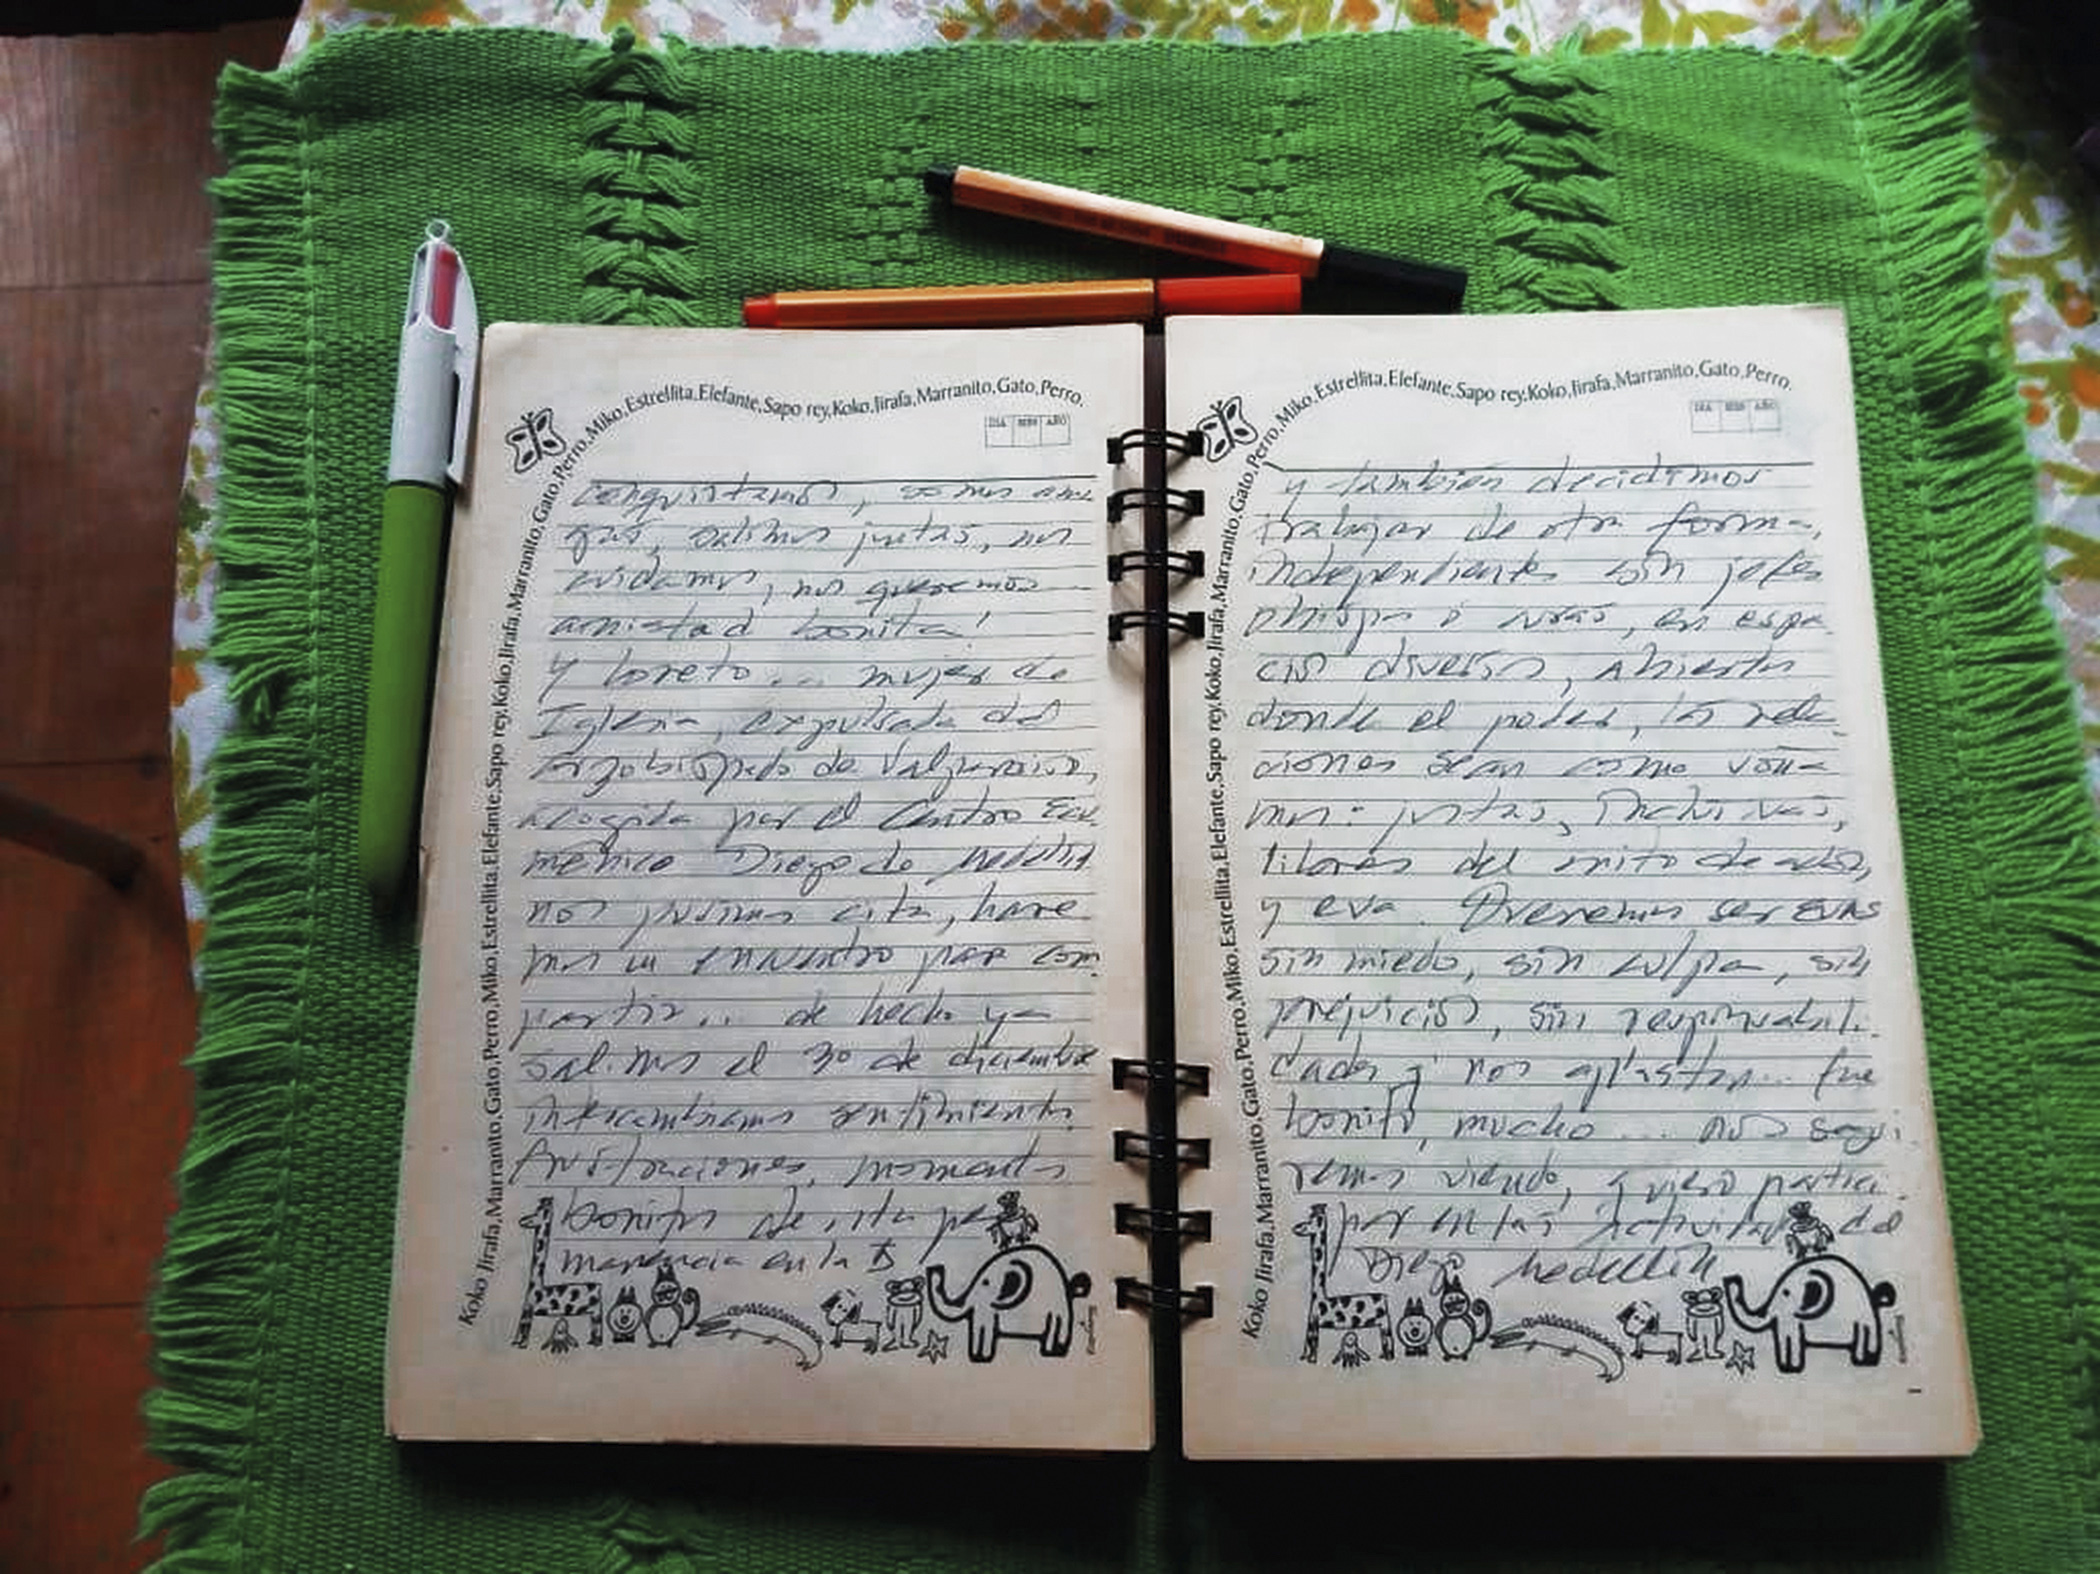 Koko Jirafa,Marranito,Gato,Perro,Miko,Estrellita,Elefante,Sapo rey,Koko,Jirafa,Marranito,Gato,Perro,Miko,Estrellita,Elefante,Sapo rey,Koko,Jirafa,Marranito,Gato,Perro.
DIA MES AÑO
conquistamos, somos ami
gas, salimos juntas, nos
cuidamos, nos queremos
amistad bonita!
y Loreto... mujer de
Iglesia, expulsada del
arzobispado de Valparaiso,
acogida por el Centro Ecu.
ménico Diego de Medellin
nos pusimos cita, hare
mos un encuentro para com.
partir... de hecho ya
salimos el 30 de diciembre
intercambiamos sentimientos.
frustraciones, momentos
bonitos de esta per
manencia en la
Koko Jirafa,Marranito,Gato,Perro,Miko,Estrellita,Elefante,Sapo rey,Koko,Jirafa,Marranito,Gato,Perro,Miko,Estrellita,Elefante,Sapo rey,Koko,Jirafa,Marranito,Gato,Perro.
DIA MES AÑO
y también decidimos
trabajar de otra forma,
independientes sin jefes
obispos o curas, en espa.
cios diversos, abiertos
donde el poder, las rela_
ciones sean como soña
mos: justas, inclusivas,
libres del mito de adan,
y eva. Queremos ser EVAS
sin miedo, sin culpa, sin
prejuicios, sin responsabili.
dades q' nos aplasten... fue
bonito, mucho... nos segui.
remos viendo, quiero partici.
par en las actividades del
Diego Medellin